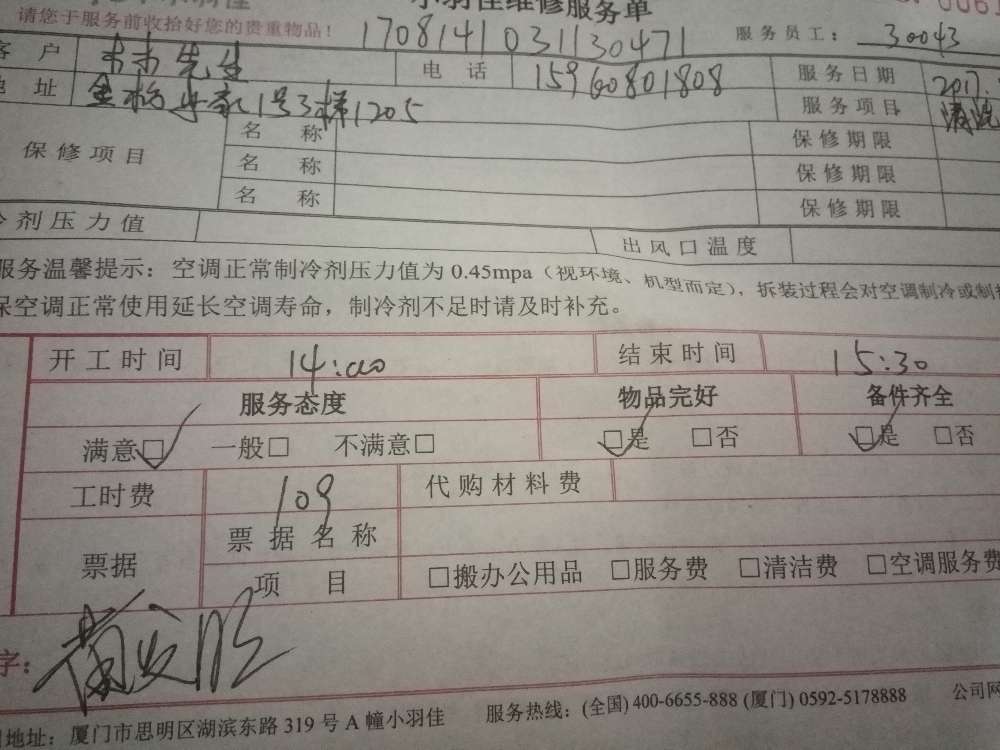 小羽佳维修服务单
请您于服务前收拾好您的贵重物品！ 170814103113047​1 服务员工： 30043
客 户 先生 电 话 15960801808 服务日期 2017.
地 址 1号3梯1205 服务项目 清洗
保修项目 名 称 保修期限
名 称 保修期限
名 称 保修期限
冷剂压力值 出风口温度
服务温馨提示：空调正常制冷剂压力值为 0.45mpa（视环境、机型而定），拆装过程会对空调制冷或制
保空调正常使用延长空调寿命，制冷剂不足时请及时补充。
开工时间 14:00 结束时间 15:30
服务态度 物品完好 备件齐全
满意☑ 一般□ 不满意□ ☑是 □否 ☑是 □否
工时费 109 代购材料费
票据 票据名称
项 目 □搬办公用品 □服务费 □清洁费 □空调服务费
字：
地址：厦门市思明区湖滨东路 319 号 A 幢小羽佳 服务热线：(全国) 400-6655-888 (厦门) 0592-5178888 公司网